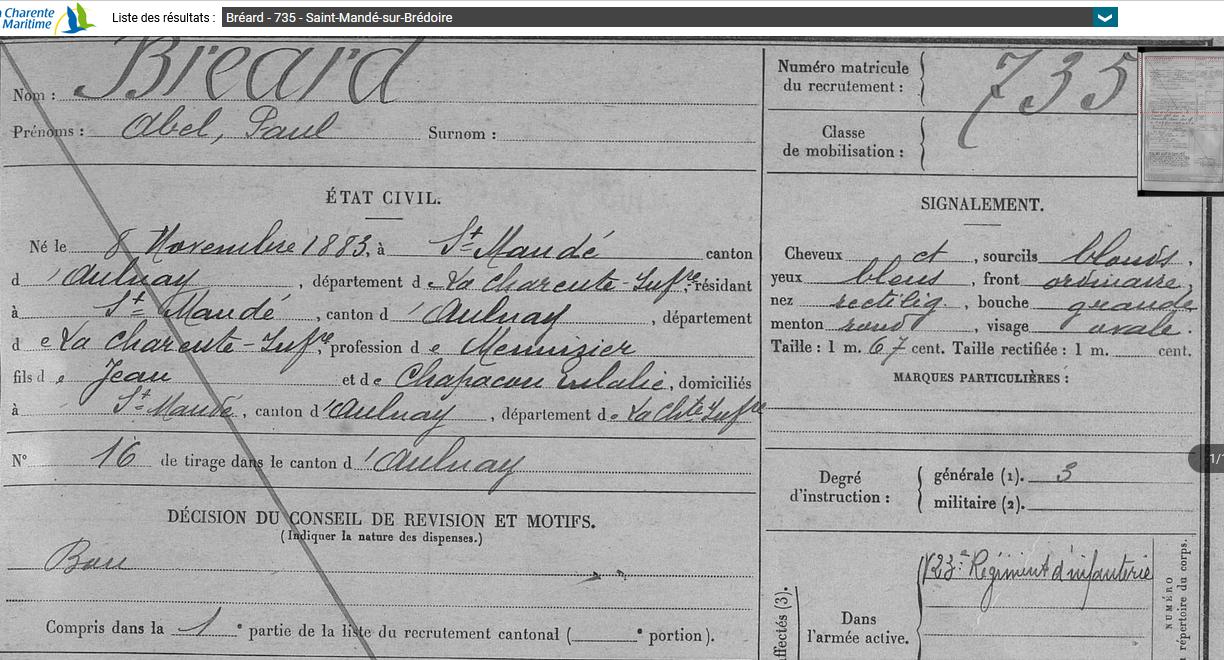 a Charente
Maritime
Liste des résultats : Bréard - 735 - Saint-Mandé-sur-Brédoire
Nom : Bréard
Prénoms : Abel, Paul Surnom :
Numéro matricule
du recrutement : 735
Classe
de mobilisation :
ÉTAT CIVIL.
Né le 8 Novembre 1883, à St Mandé canton
d'Aulnay, département de La Charente-Infre, résidant
à St Mandé, canton d'Aulnay, département
de La Charente-Infre, profession de Menuizier
fils de Jean et de Chapacou Eulalie, domiciliés
à St Mandé, canton d'Aulnay, département de La Chte Infre
N° 16 de tirage dans le canton d'Aulnay
DÉCISION DU CONSEIL DE REVISION ET MOTIFS.
(Indiquer la nature des dispenses.)
Bon
Compris dans la 1e partie de la liste du recrutement cantonal (e portion).
SIGNALEMENT.
Cheveux et, sourcils blonds,
yeux bleus, front ordinaire,
nez rectilig, bouche grande
menton rond, visage ovale.
Taille : 1 m. 67 cent. Taille rectifiée : 1 m. cent.
MARQUES PARTICULIÈRES :
Degré
d'instruction :
générale (1). 3
militaire (2).
ffectés (3).
Dans
l'armée active.
123e Régiment d'infanterie
NUMÉRO
répertoire du corps.
1/1